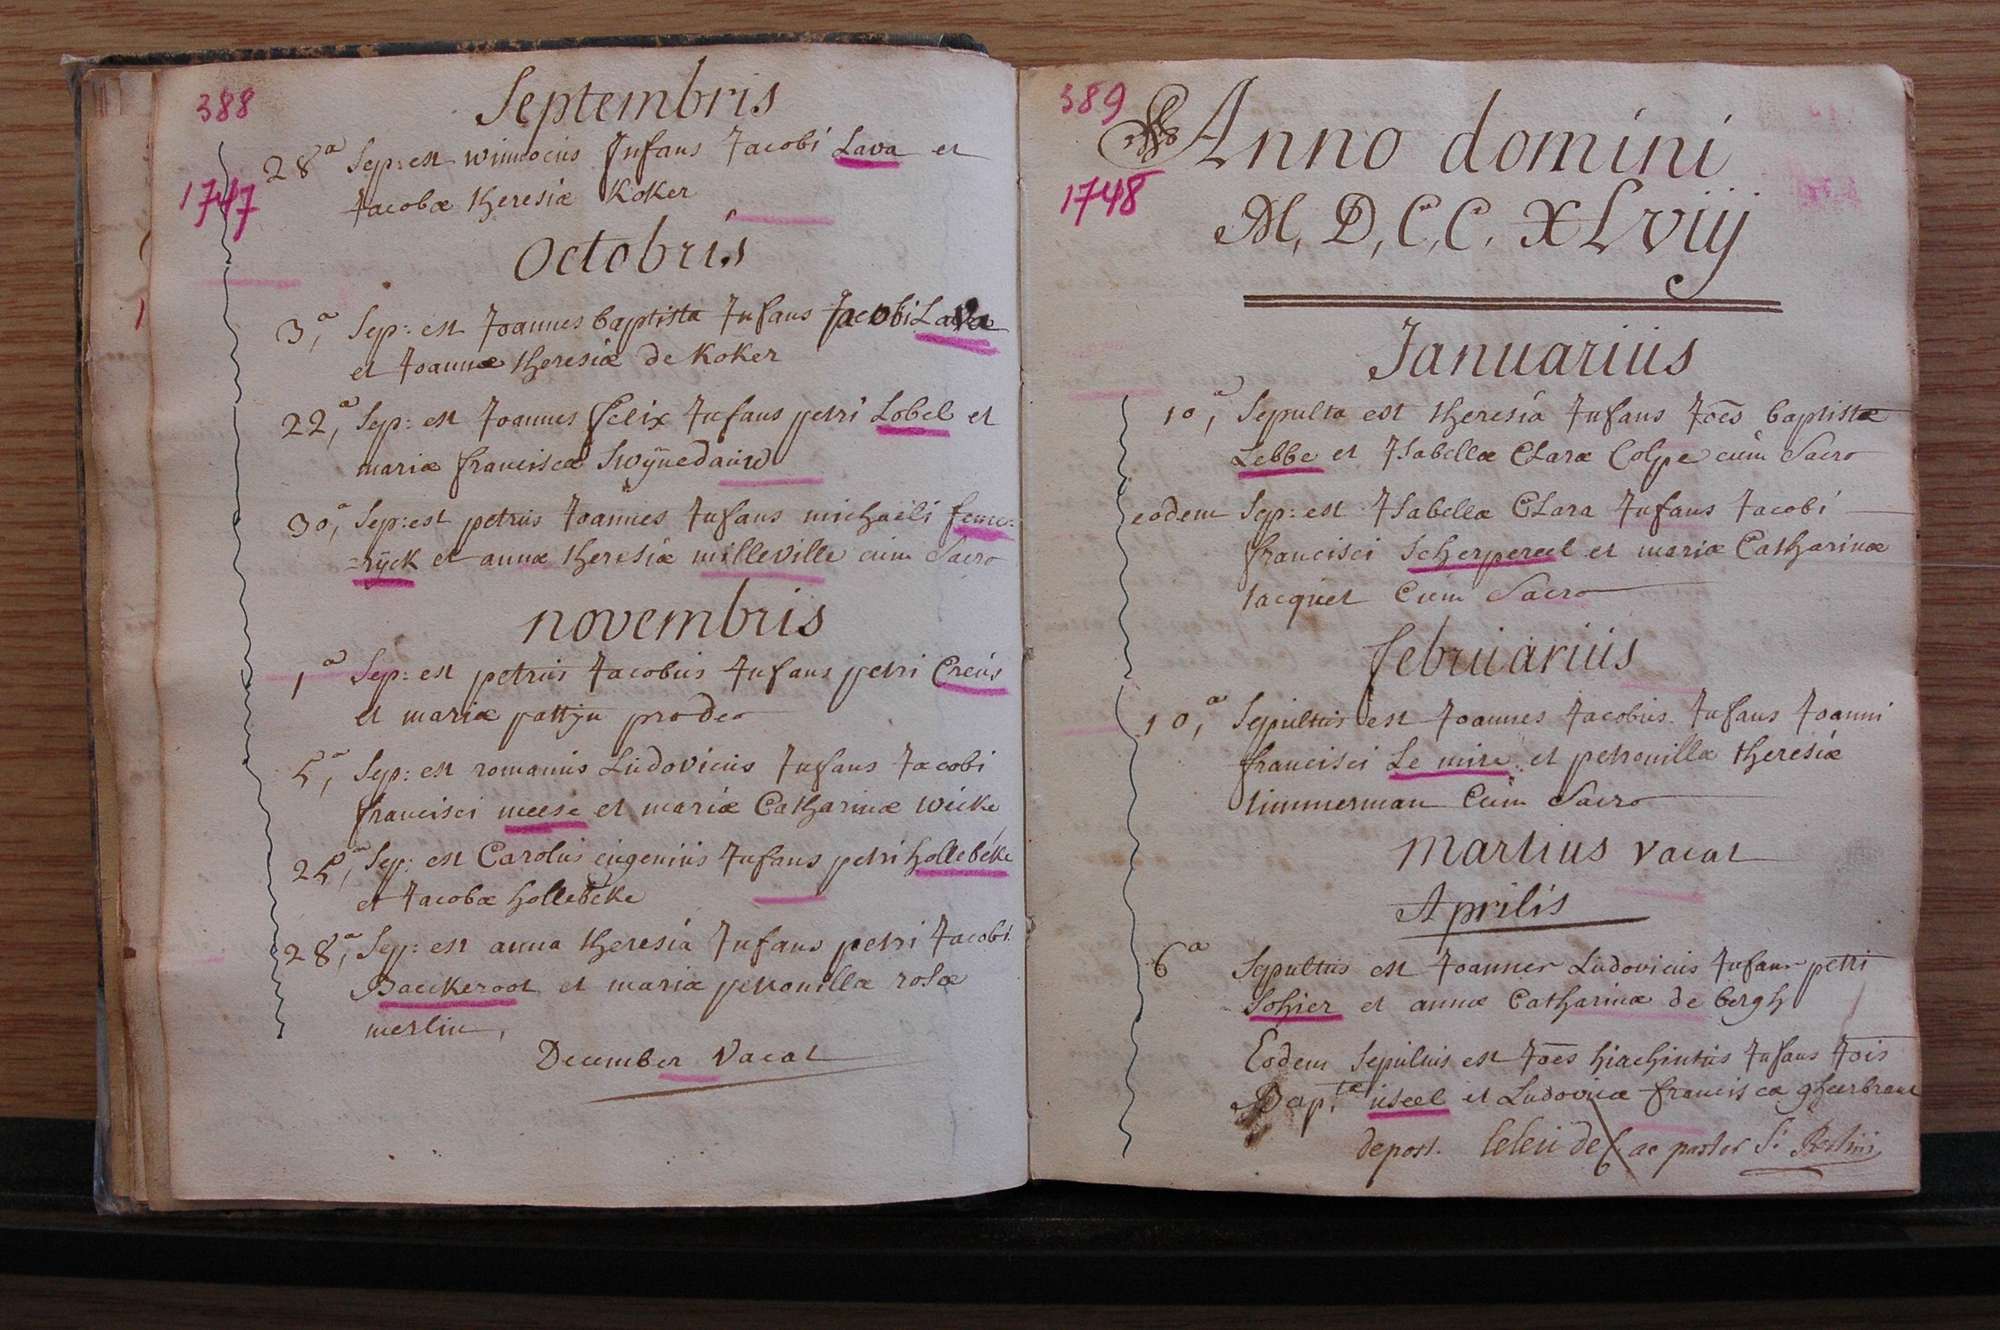 388
Septembris
1747
28a Sep: est winnocus Infans Jacobi Lava et
Jacobæ Theresiæ Koker
Octobris
3,a Sep: est Joannes baptista Infans Jacobi Lava
et Joannæ theresiæ de Koker
22,a Sep: est Joannes felix Infans petri Lobel et
mariæ franciscæ Swÿnedauw
30,a Sep: est petrus Joannes Infans michaëli feme=
=rÿck et annæ theresiæ milleville cum Sacro
novembris
1a Sep: est petrus Jacobus Infans petri Creus
et mariæ pattyn pro deo
5,a Sep: est romanus Ludovicus Infans Jacobi
francisci meese et mariæ Catharinæ wicke
25,a Sep: est Carolus eugenius Infans petri hollebeke
et Jacobæ hollebeke
28,a Sep: est anna theresia Infans petri Jacobi
Baeckeroot et mariæ petronillæ rosæ
merlin,
December Vacat
389
Anno domini
1748
M, D, C, C, XLviij
Januarius
10,a Sepulta est theresia Infans Joēs baptistæ
Lebbe et Isabellæ Claræ Colpe cum Sacro
eodem Sep: est Isabella Clara Infans Jacobi
francisci Scherpereel et mariæ Catharinæ
Jacquet Cum Sacro
februarius
10,a Sepultus est Joannes Jacobus Infans Joanni
francisci Le mire et petronillæ theresiæ
timmerman Cum Sacro
Martius vacat
Aprilis
6a Sepultus est Joannes Ludovicus Infans petri
Sohier et annæ Catharinæ de bergh
Eodem Sepultus est Joēs hiachintus Infans Jois
Bap.tæ useel et Ludovicæ franciscæ gheerbrant
depost. leleu dec ac pastor St Bertini